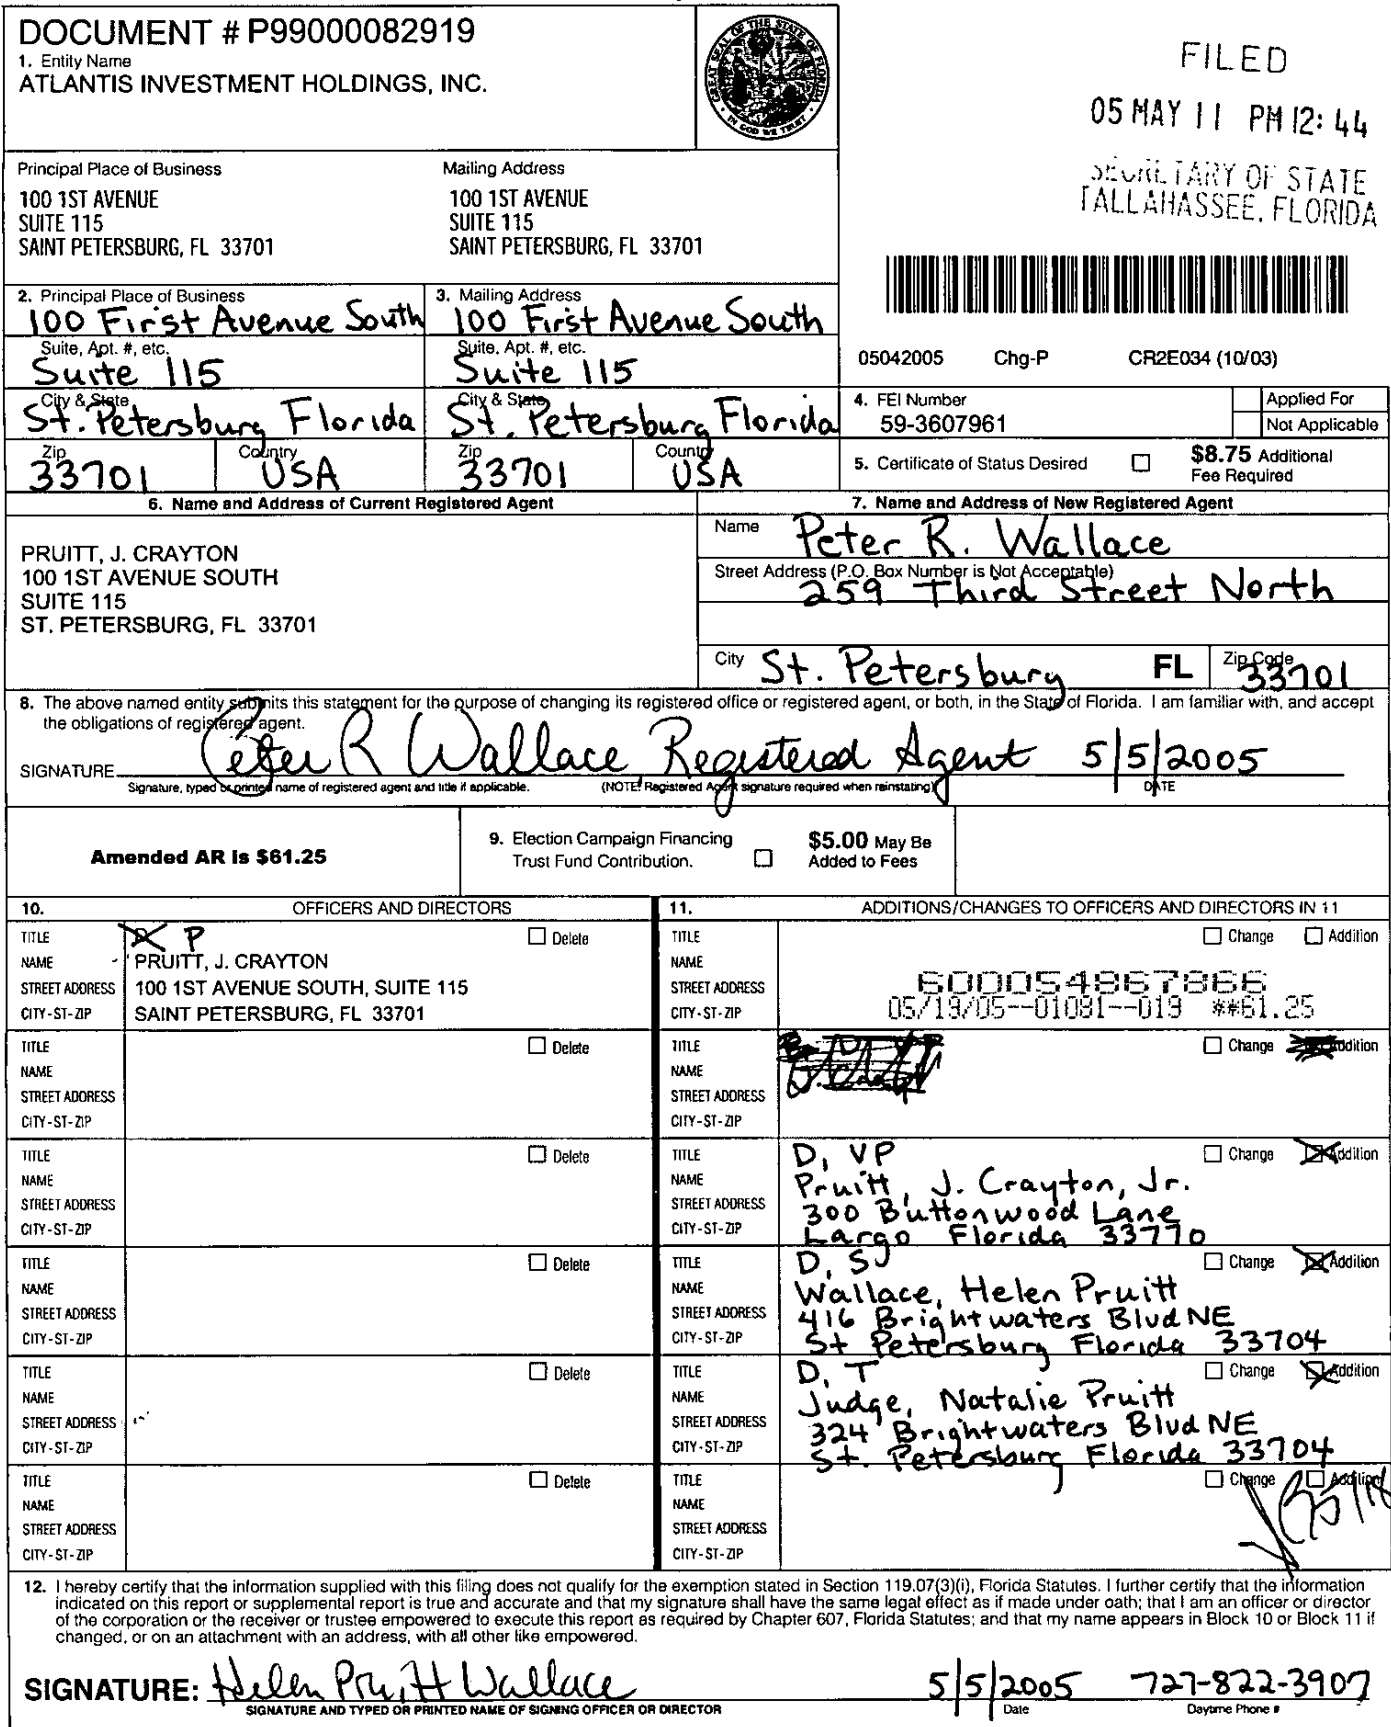 DOCUMENT # P99000082919
1. Entity Name
ATLANTIS INVESTMENT HOLDINGS, INC.
GREAT SEAL OF THE STATE OF FLORIDA
IN GOD WE TRUST
FILED
05 MAY 11 PM 12: 44
SECRETARY OF STATE
TALLAHASSEE, FLORIDA
Principal Place of Business
100 1ST AVENUE
SUITE 115
SAINT PETERSBURG, FL 33701
Mailing Address
100 1ST AVENUE
SUITE 115
SAINT PETERSBURG, FL 33701
2. Principal Place of Business
100 First Avenue South
Suite, Apt. #, etc.
Suite 115
City & State
St. Petersburg Florida
Zip
33701
Country
USA
3. Mailing Address
100 First Avenue South
Suite, Apt. #, etc.
Suite 115
City & State
St. Petersburg Florida
Zip
33701
Country
USA
05042005 Chg-P CR2E034 (10/03)
4. FEI Number
59-3607961
Applied For
Not Applicable
5. Certificate of Status Desired
$8.75 Additional
Fee Required
6. Name and Address of Current Registered Agent
PRUITT, J. CRAYTON
100 1ST AVENUE SOUTH
SUITE 115
ST. PETERSBURG, FL 33701
7. Name and Address of New Registered Agent
Name Peter R. Wallace
Street Address (P.O. Box Number is Not Acceptable)
259 Third Street North
City St. Petersburg FL Zip Code 33701
8. The above named entity submits this statement for the purpose of changing its registered office or registered agent, or both, in the State of Florida. I am familiar with, and accept
the obligations of registered agent.
SIGNATURE Peter R Wallace, Registered Agent 5/5/2005
Signature, typed or printed name of registered agent and title if applicable. (NOTE: Registered Agent signature required when reinstating) DATE
Amended AR is $61.25
9. Election Campaign Financing
Trust Fund Contribution.
$5.00 May Be
Added to Fees
10. OFFICERS AND DIRECTORS
TITLE P Delete
NAME PRUITT, J. CRAYTON
STREET ADDRESS 100 1ST AVENUE SOUTH, SUITE 115
CITY-ST-ZIP SAINT PETERSBURG, FL 33701
TITLE Delete
NAME
STREET ADDRESS
CITY-ST-ZIP
TITLE Delete
NAME
STREET ADDRESS
CITY-ST-ZIP
TITLE Delete
NAME
STREET ADDRESS
CITY-ST-ZIP
TITLE Delete
NAME
STREET ADDRESS
CITY-ST-ZIP
TITLE Delete
NAME
STREET ADDRESS
CITY-ST-ZIP
11. ADDITIONS/CHANGES TO OFFICERS AND DIRECTORS IN 11
TITLE Change Addition
NAME
STREET ADDRESS 600054867866
CITY-ST-ZIP 05/19/05--01081--019 **61.25
TITLE Change Addition
NAME
STREET ADDRESS
CITY-ST-ZIP
TITLE D, VP Change Addition
NAME Pruitt, J. Crayton, Jr.
STREET ADDRESS 300 Buttonwood Lane
CITY-ST-ZIP Largo Florida 33770
TITLE D, S Change Addition
NAME Wallace, Helen Pruitt
STREET ADDRESS 416 Brightwaters Blvd NE
CITY-ST-ZIP St Petersburg Florida 33704
TITLE D, T Change Addition
NAME Judge, Natalie Pruitt
STREET ADDRESS 324 Brightwaters Blvd NE
CITY-ST-ZIP St. Petersburg Florida 33704
TITLE Change Addition
NAME
STREET ADDRESS
CITY-ST-ZIP
12. I hereby certify that the information supplied with this filing does not qualify for the exemption stated in Section 119.07(3)(i), Florida Statutes. I further certify that the information
indicated on this report or supplemental report is true and accurate and that my signature shall have the same legal effect as if made under oath; that I am an officer or director
of the corporation or the receiver or trustee empowered to execute this report as required by Chapter 607, Florida Statutes; and that my name appears in Block 10 or Block 11 if
changed, or on an attachment with an address, with all other like empowered.
SIGNATURE: Helen Pruitt Wallace 5/5/2005 727-822-3907
SIGNATURE AND TYPED OR PRINTED NAME OF SIGNING OFFICER OR DIRECTOR Date Daytime Phone #